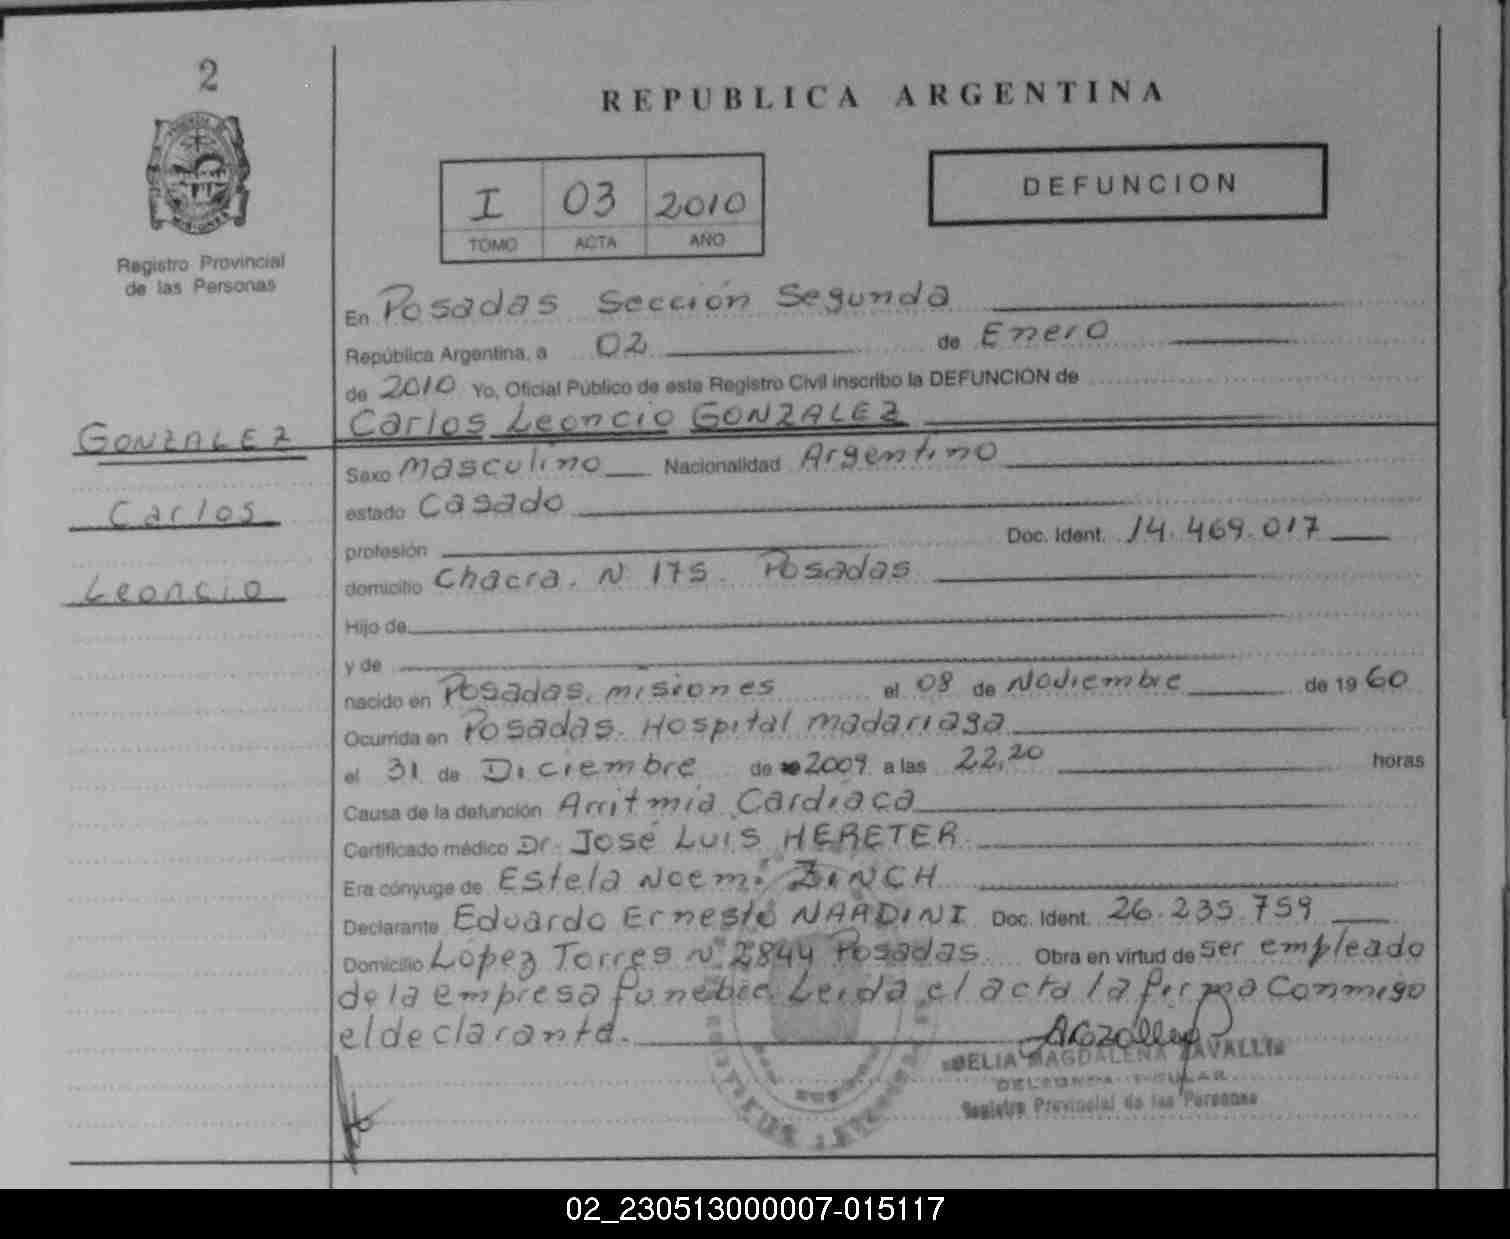 2
REPUBLICA ARGENTINA
DEFUNCION
I 03 2010
TOMO ACTA AÑO
Registro Provincial
de las Personas
En Posadas Sección Segunda
República Argentina, a 02 de Enero
de 2010 Yo, Oficial Público de este Registro Civil inscribo la DEFUNCION de
Carlos Leoncio GONZALEZ
GONZALEZ
Carlos
Leoncio
Sexo masculino Nacionalidad Argentino
estado Casado
profesión Doc. Ident. 14.469.017
domicilio Chacra. N 175. Posadas
Hijo de
y de
nacido en Posadas. misiones el 08 de Noviembre de 1960
Ocurrida en Posadas. Hospital madariaga
el 31 de Diciembre de 2009 a las 22,20 horas
Causa de la defunción Arritmia Cardiaca
Certificado médico Dr. José Luis HERETER
Era cónyuge de Estela Noemi ZINCH
Declarante Eduardo Ernesto NARDINI Doc. Ident. 26.235.759
Domicilio López Torres N° 2844 Posadas. Obra en virtud de ser empleado
de la empresa funebre. Leida el acta la firma Conmigo
el declarante.
DELIA MAGDALENA ZAVALLIA
DELEGADA TITULAR
Registro Provincial de las Personas
02_230513000007-015117